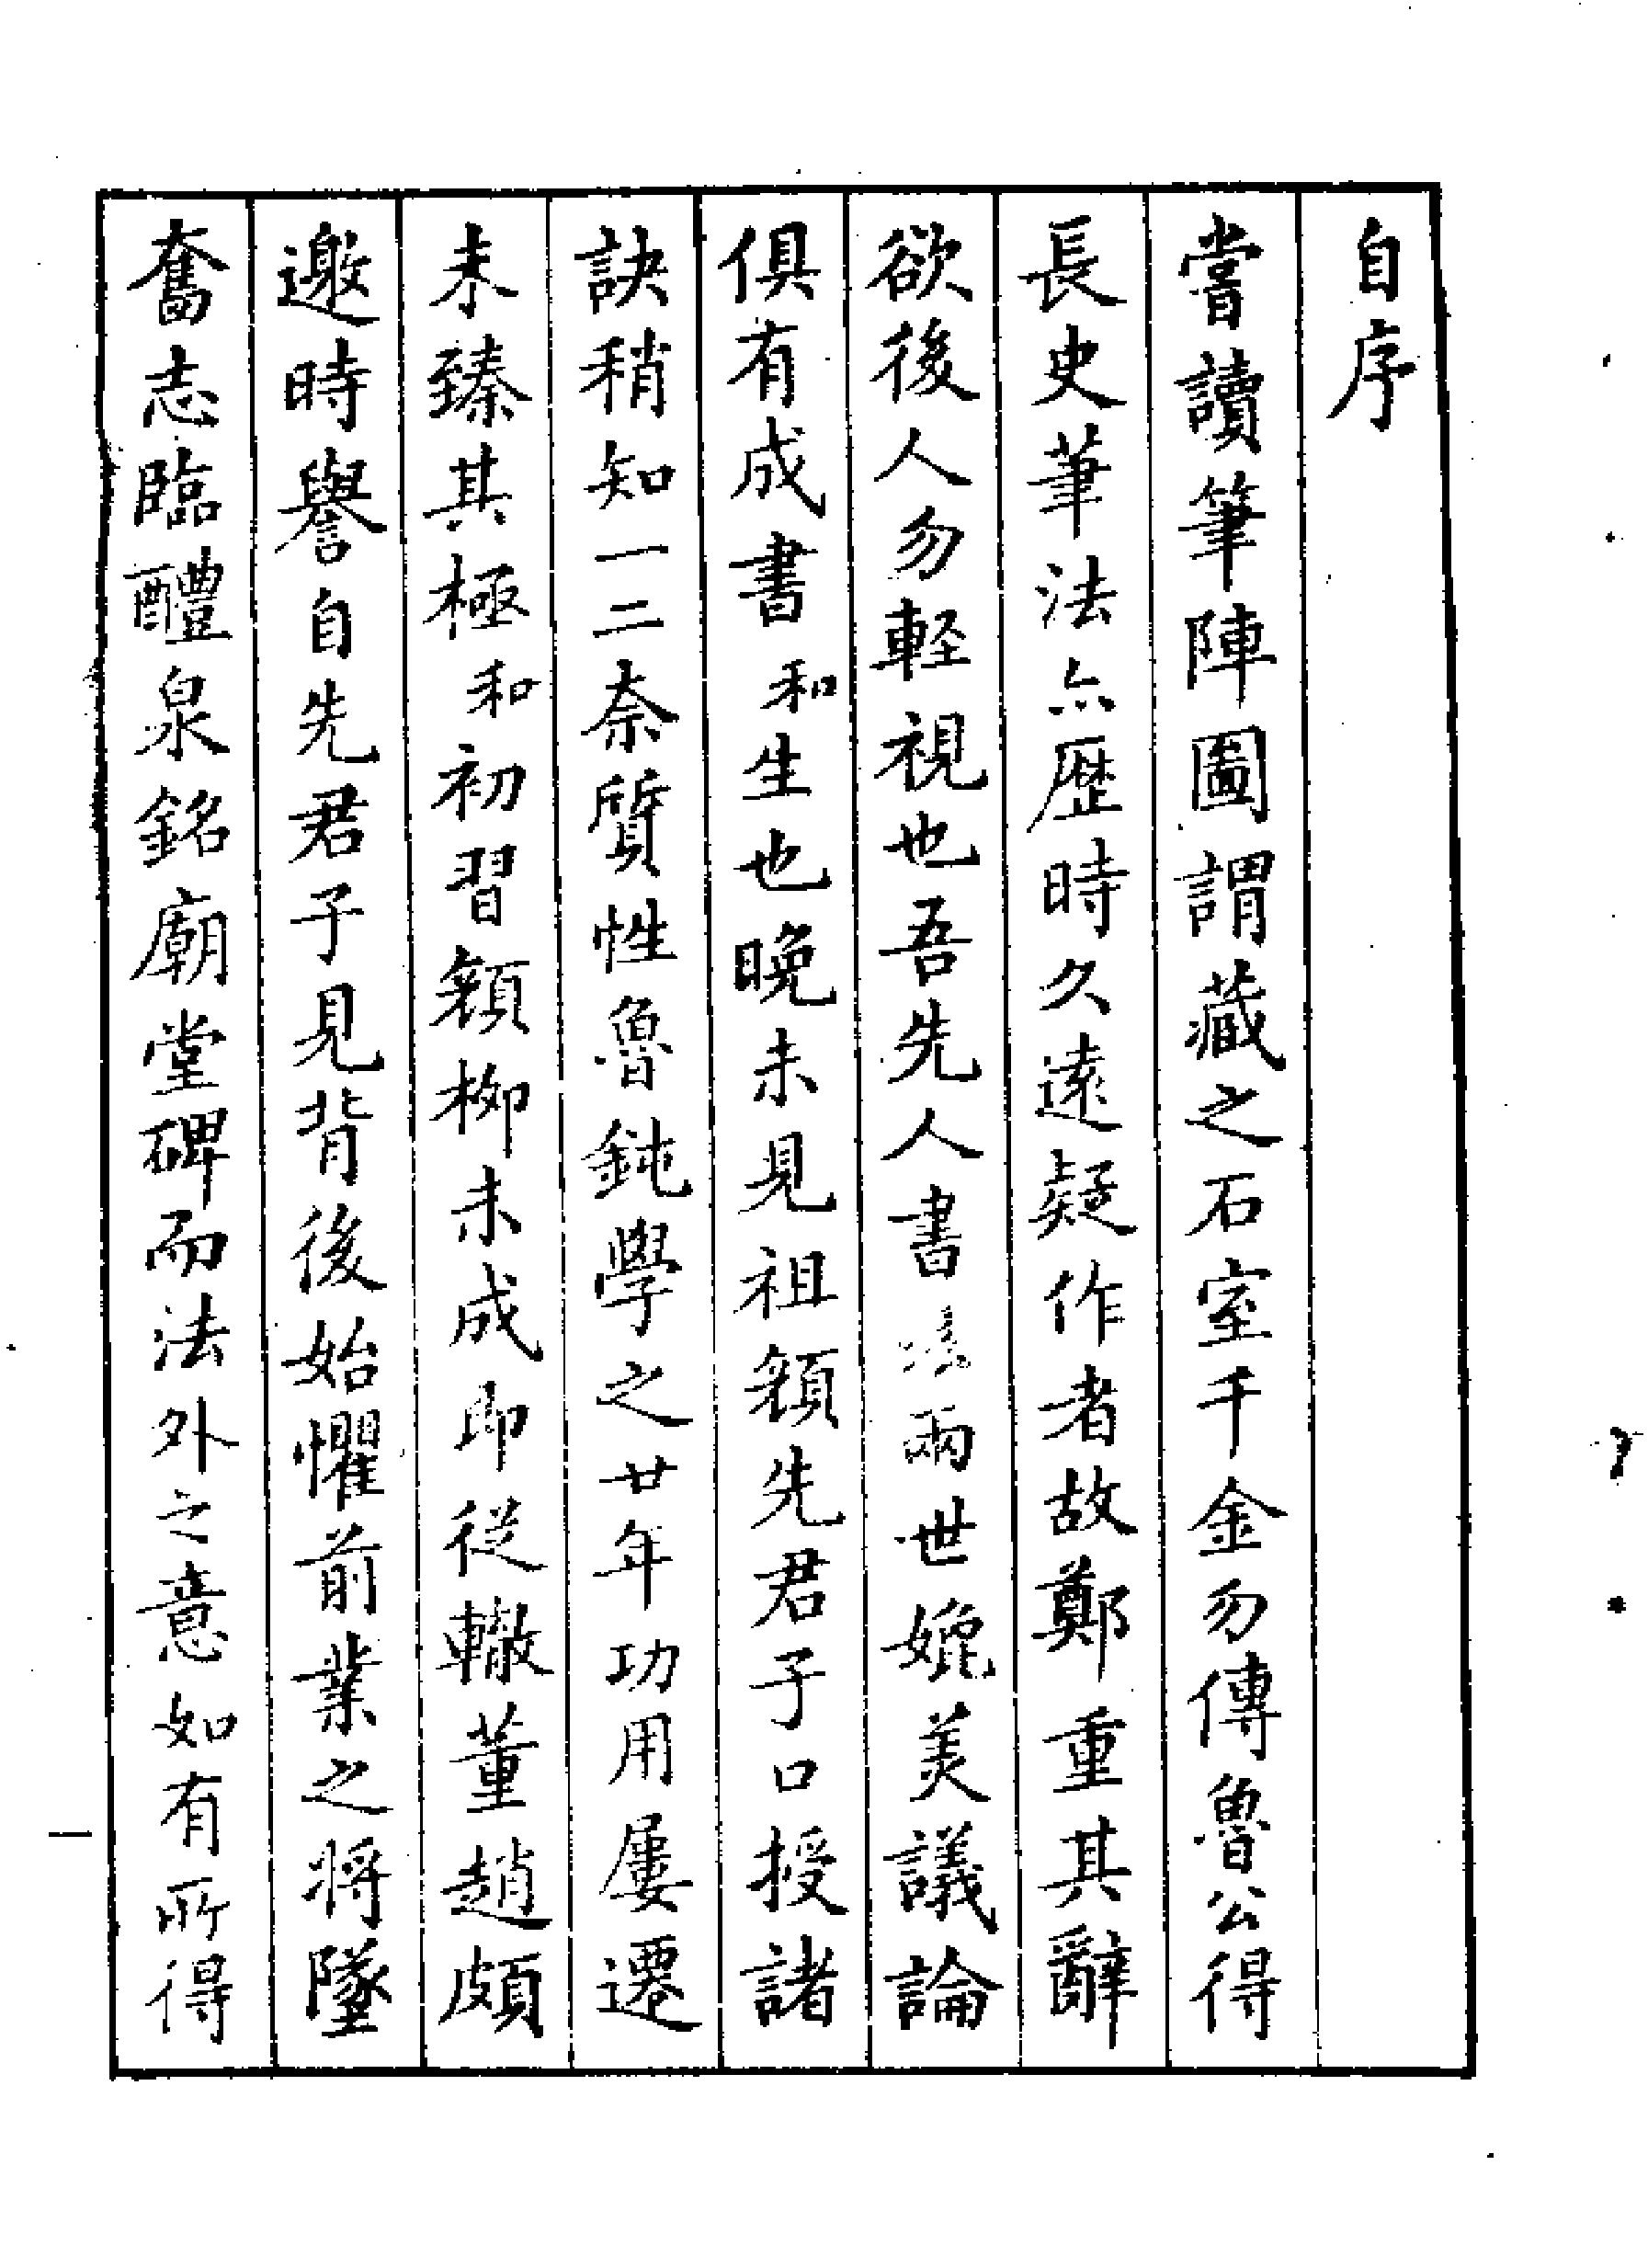 自序
嘗讀筆陣圖謂藏之石室千金勿傳魯公得
長史筆法亦歷時久遠疑作者故鄭重其辭
欲後人勿輕視也吾先人書法兩世媲美議論
俱有成書和生也晚未見祖顏先君子口授諸
訣稍知一二奈質性魯鈍學之廿年功用屢遷
未臻其極和初習顏柳未成即從轍董趙頗
邀時譽自先君子見背後始懼前業之將墜
奮志臨醴泉銘廟堂碑而法外之意如有所得
一